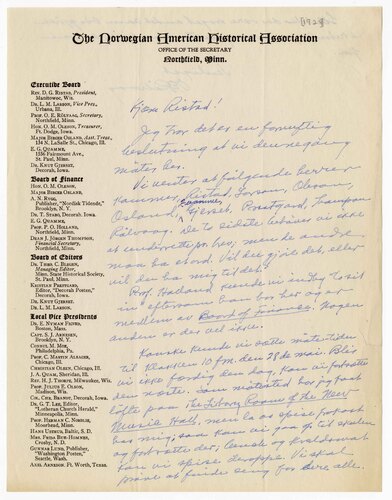 [1928]
The Norwegian American Historical Association
OFFICE OF THE SECRETARY
Northfield, Minn.
Executive Board
REV. D. G. RISTAD, President,
Manitowoc, Wis.
DR. L. M. LARSON, Vice Pres.,
Urbana, Ill.
PROF. O. E. RÖLVAAG, Secretary,
Northfield, Minn.
HON. O. M. OLESON, Treasurer,
Ft. Dodge, Iowa.
MAJOR BIRGER OSLAND, Asst. Treas.,
134 N. LaSalle St., Chicago, Ill.
E. G. QUAMME,
1556 Fairmount Ave.,
St. Paul, Minn.
DR. KNUT GJERSET,
Decorah, Iowa.
Board of Finance
HON. O. M. OLESON,
MAJOR BIRGER OSLAND,
A. N. RYGG,
Publisher, "Nordisk Tidende,"
Brooklyn, N. Y.
DR. T. STABO, Decorah, Iowa.
E. G. QUAMME,
St. Paul, Minn.
PROF. P. O. HOLLAND,
Northfield, Minn.
DEAN J. JÖRGEN THOMPSON,
Financial Secretary,
Northfield, Minn.
Board of Editors
DR. THEO. C. BLEGEN,
Managing Editor,
Minn. State Historical Society,
St. Paul, Minn.
KRISTIAN PRESTGARD,
Editor, "Decorah Posten,"
Decorah, Iowa.
DR. KNUT GJERSET,
Decorah, Iowa.
Local Vice Presidents
DR. E. NYMAN FIGVED,
Boston, Mass.
CAPT. S. J. ARNESEN,
Brooklyn, N. Y.
CONSUL M. MOE,
Philadelphia, Pa.
PROF. C. MARTIN ALSAGER,
Chicago, Ill.
CHRISTIAN OLSEN, Chicago, Ill.
J. A. QUAM, Sheridan, Ill.
REV. H. J. THORPE, Milwaukee, Wis.
PROF. JULIUS E. OLSON,
Madison, Wis.
CIR. CHR. BRANDT, Decorah, Iowa.
DR. G. T. LEE, Editor
"Lutheran Church Herald,"
Minneapolis, Minn.
PROF. HERMAN C. NORDLIE,
Moorhead, Minn.
HANS USTRUD, Baltic, S. D.
MRS. FRIDA BUE-HOMNES,
Crosby, N. D.
GUNNAR LUND, Publisher
"Washington Posten,"
Seattle, Wash.
AXEL ARNESON, Ft. Worth, Texas.
Kjære Ristad!
Jeg tror det er en fornuftig
beslutning at vi denne gang
møtes her.
Vi venter at følgende herrer
kommer, Ristad, Larson, Oleson,
Osland, Quamme, Gjerset, Prestgard,
Rölvaag. De to sidste behøves vi ikke
at underrette pr. brev; men de andre
maa ha ebord. Vil du gjøre det, eller
vil du ha mig til det?
Prof. Holland kunde vi indby til
i eftermiddag han bor her og er
medlem av Board of Finance. Nogen
anden er der vel ikke.
Kanske kunde vi sætte møte-tiden
til klokken 10 fm. den 28 de mai. Blir
vi ikke færdig den dag, kan vi fortsætte
den næste. Som møtested har jeg faat
løfte paa The Library Room of the New
Music Hall, men la os spise frokost
hos mig; saa kan vi gaa op til skolen
og fortsætte der;
kan vi spise
at finde seng for dere alle.